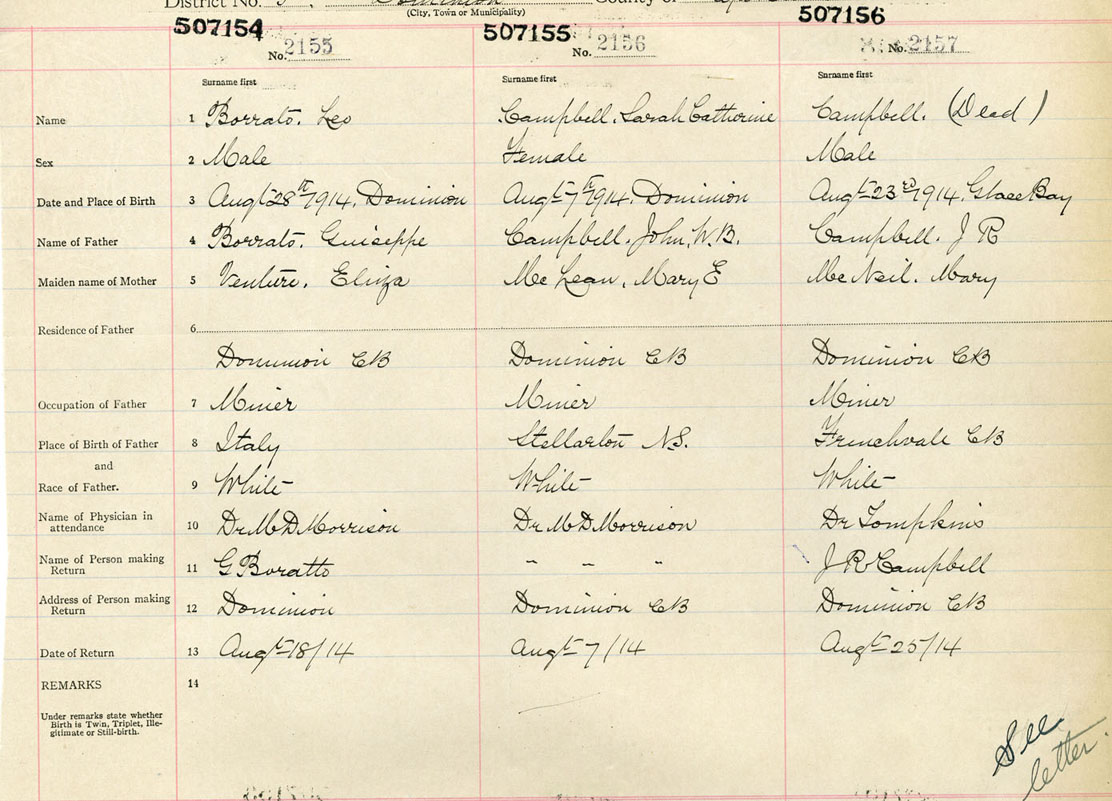 District No. Dominion County of
(City, Town or Municipality)
507154 507155 507156
No. 2155 No. 2156 No. 2157
Surname first Surname first Surname first
Name 1 Borrato. Leo Campbell. Sarah Catherine Campbell. (Dead)
Sex 2 Male Female Male
Date and Place of Birth 3 Augt 28th 1914. Dominion Augt 7th 1914. Dominion Augt 23rd 1914. Glace Bay
Name of Father 4 Borrato. Guiseppe Campbell. John. W. B. Campbell. J R
Maiden name of Mother 5 Venture. Eliza Mc Lean, Mary E Mc Neil. Mary
Residence of Father 6
Dominion CB Dominion CB Dominion CB
Occupation of Father 7 Miner Miner Miner
Place of Birth of Father 8 Italy Stellarton N.S. Frenchvale CB
and
Race of Father. 9 White White White
Name of Physician in attendance 10 Dr M D Morrison Dr M D Morrison Dr Tompkins
Name of Person making Return 11 G Boratto " " " J R Campbell
Address of Person making Return 12 Dominion Dominion CB Dominion CB
Date of Return 13 Augt 18/14 Augt 7/14 Augt 25/14
REMARKS 14
Under remarks state whether
Birth is Twin, Triplet, Ille-
gitimate or Still-birth.
See
letter.